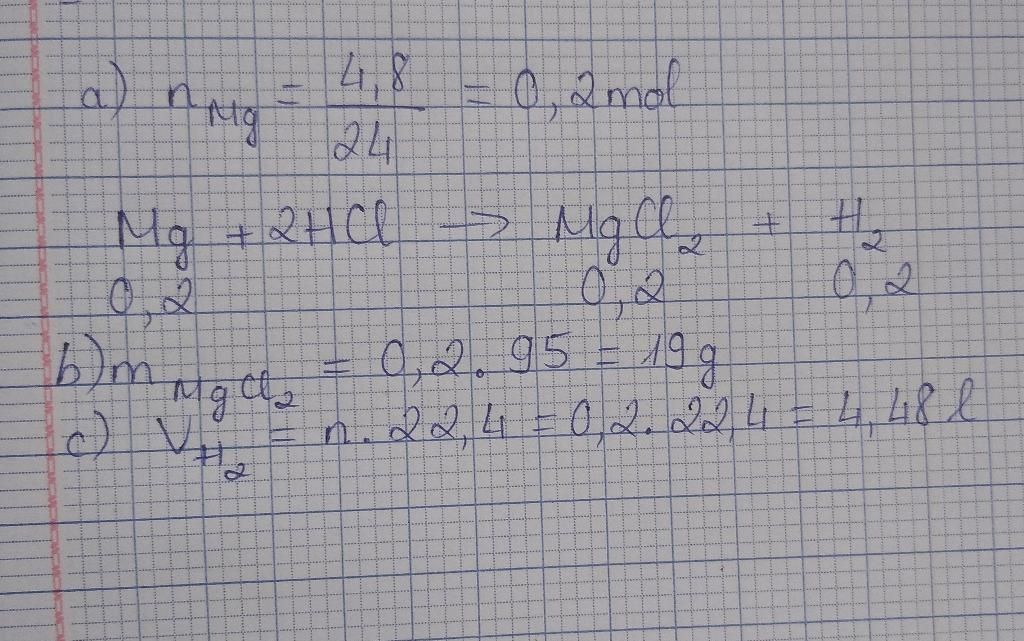 a) n Mg = 4,8 / 24 = 0,2 mol
Mg + 2HCl → MgCl2 + H2
0,2 0,2 0,2
b) m MgCl2 = 0,2 . 95 = 19 g
c) V H2 = n . 22,4 = 0,2 . 22,4 = 4,48 l